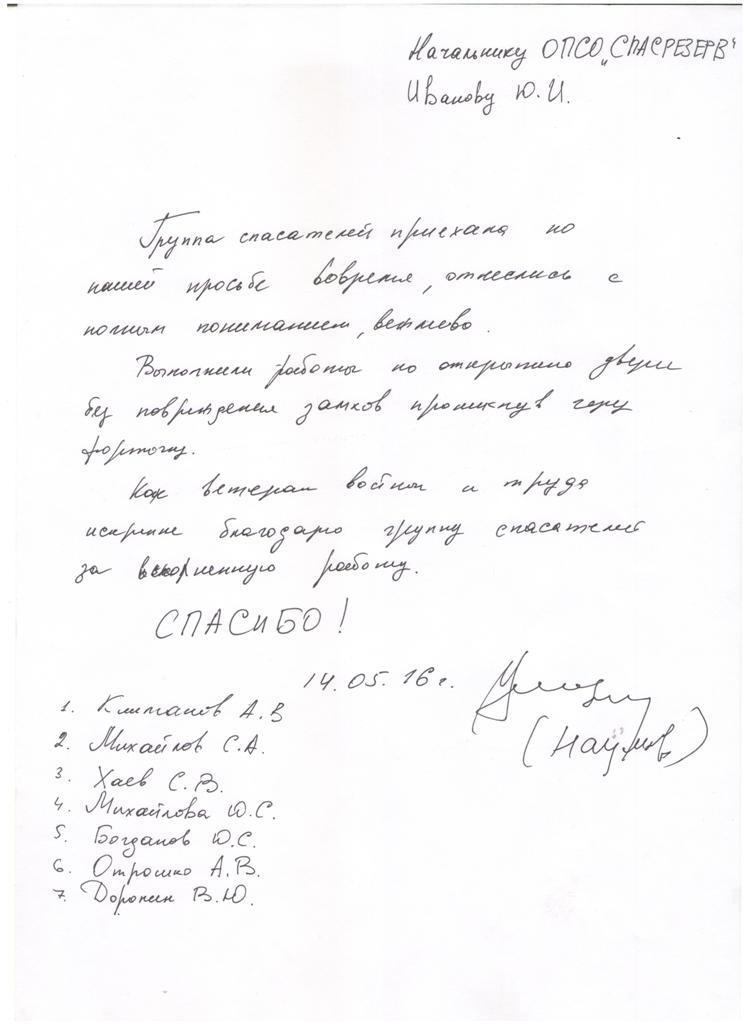 Начальнику ОПСО „СПАСРЕЗЕРВ"
Иванову Ю.И.
Группа спасателей приехала по
нашей просьбе вовремя, отнеслись с
полным пониманием, вежливо.
Выполнили работы по открытию двери
без повреждения замков проникнув через
форточку.
Как ветеран войны и труда
искренне благодарю группу спасателей
за работу.
СПАСИБО!
14.05.16 г.
(Наумов)
1. Климанов А.В
2. Михайлов С.А.
3. Хаев С.В.
4. Михайлова Ю.С.
5. Богданов Ю.С.
6. Отрошко А.В.
7. Доронин В.Ю.